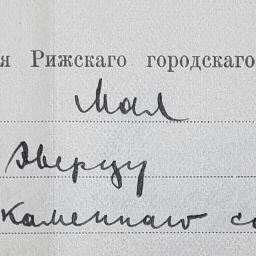 я Рижскаго городскаго
Мая
Эверцу
каменнаго со